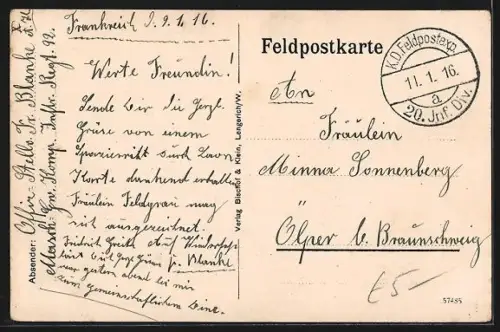 Frankreich, d. 9. 1. 16.
Werte Freundin!
Sende Dir die herzl.
Grüße von einem
Spazierritt durch Laon
Karte dankend erhalten
Fräulein Feldgrau mag
ist ausgezeichnet.
Blanke
zum gemeinschaftlichen
Absender: Offiz. Stello. Fr. Blanke
Masch. Gew. Komp. Inftr. Regt. 92.
Verlag Bischof & Klein, Lengerich i/W.
Feldpostkarte
K.D. Feldpostexp.
11. 1. 16.
a
20. Inf. Div.
An
Fräulein
Minna Sonnenberg
Ölper b. Braunschweig
£5-
57485